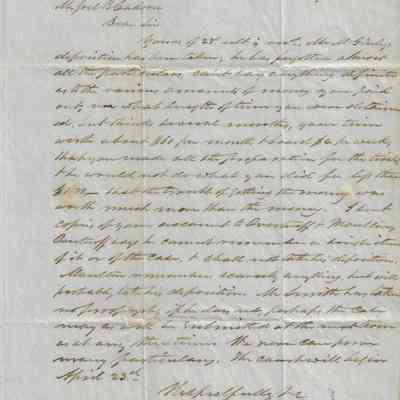 Dear Sir
Yours of 28 ult is rec'd, Mr
deposition has been taken, he has forgotten almost
all the particulars, can't say anything definite
as to the various amounts of money you paid
out, nor what length of time you were detain
ed, but thinks several months, your time
worth about $60 per month, & board $ per week,
that you made all the preparation for the trial,
& he would not do what you did for less than
that the trouble of getting the money was
worth much more than the money. I sent
copies of your account to & Moulton,
says he cannot remember a single item
of it or of the case, & I shall not take his deposition.
Moulton remembers scarcely anything, but will
probably take his deposition. Mr Smith has taken
no proof, and perhaps the case
may as well be submitted at the next term
as at any other time. We now can prove
many particulars. The court will begin
April 23rd
Respectfully &c